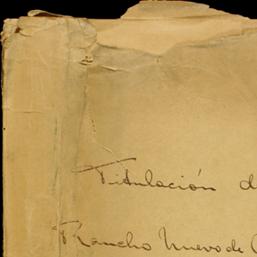 Titulación d
Rancho Nuevo de